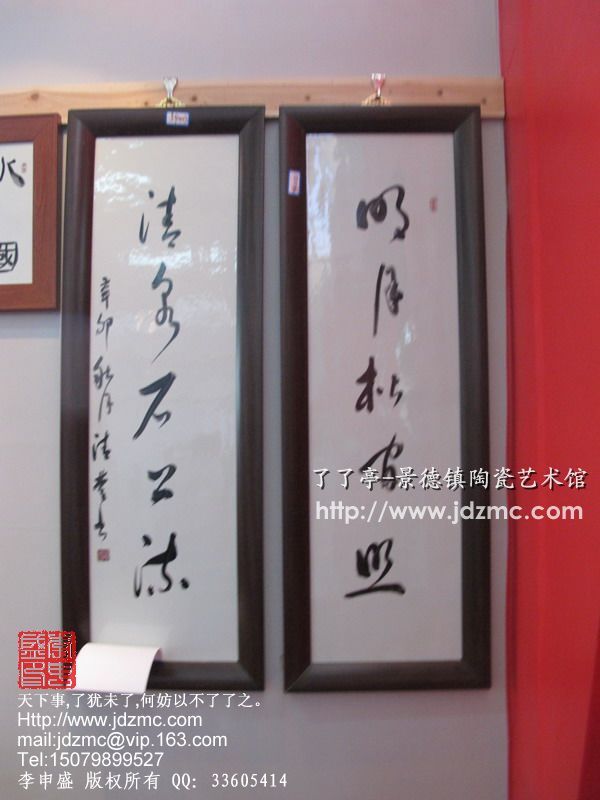 明月松间照
清泉石上流
辛卯秋月清
书
國
了了亭-景德镇陶瓷艺术馆
http://www.jdzmc.com
天下事,了犹未了,何妨以不了了之。
Http://www.jdzmc.com
mail:jdzmc@vip.163.com
Tel:15079899527
李申盛 版权所有 QQ: 33605414